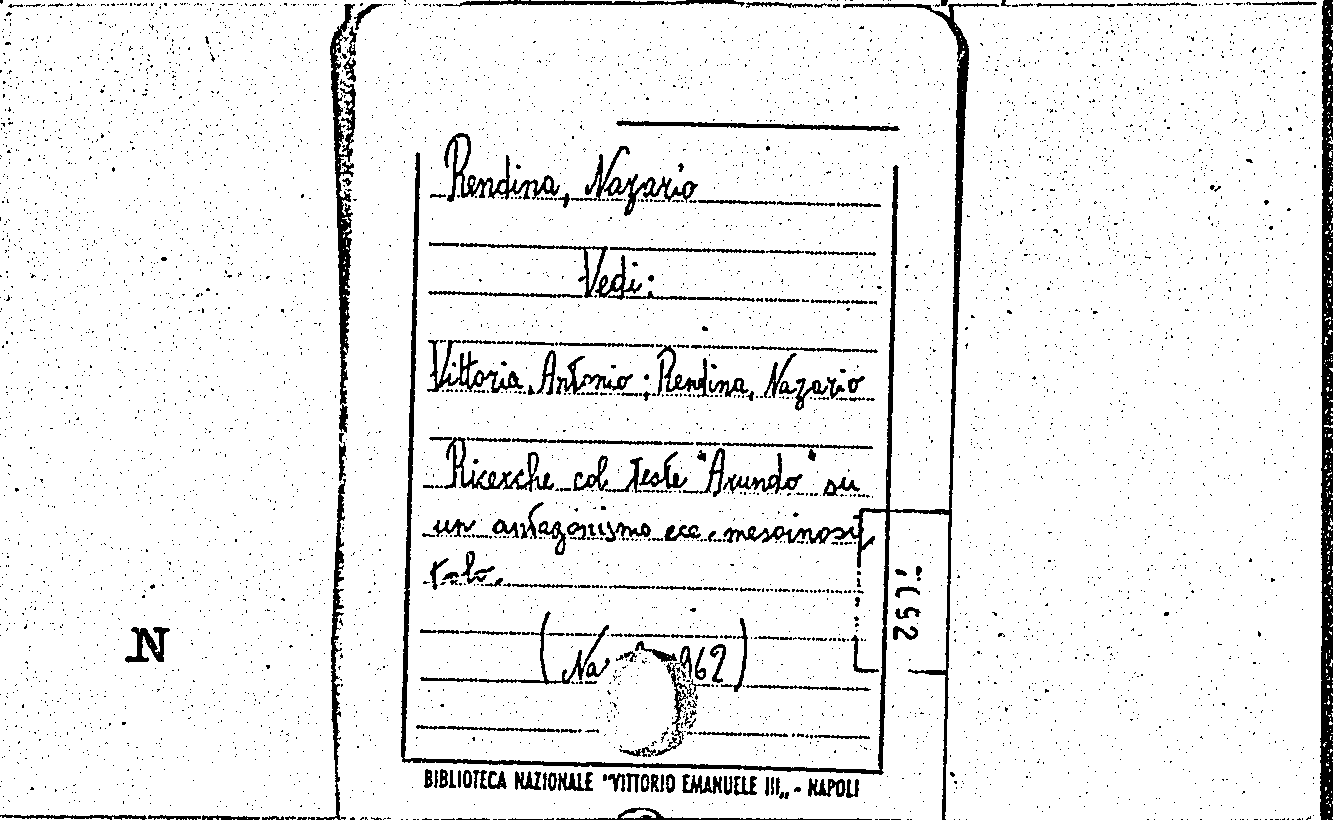 Rendina, Nazario
Vedi:
Vittoria, Antonio ; Rendina, Nazario
Ricerche col teste "Arundo" su
un antagonismo ecc. mesoinosi,
tolo.
(Na 962)
N
BIBLIOTECA NAZIONALE "VITTORIO EMANUELE III„ - NAPOLI